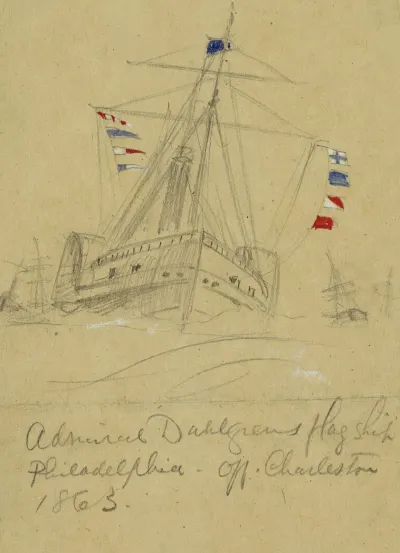 Admiral Dahlgrens flag ship
Philadelphia - off. Charleston
1863.